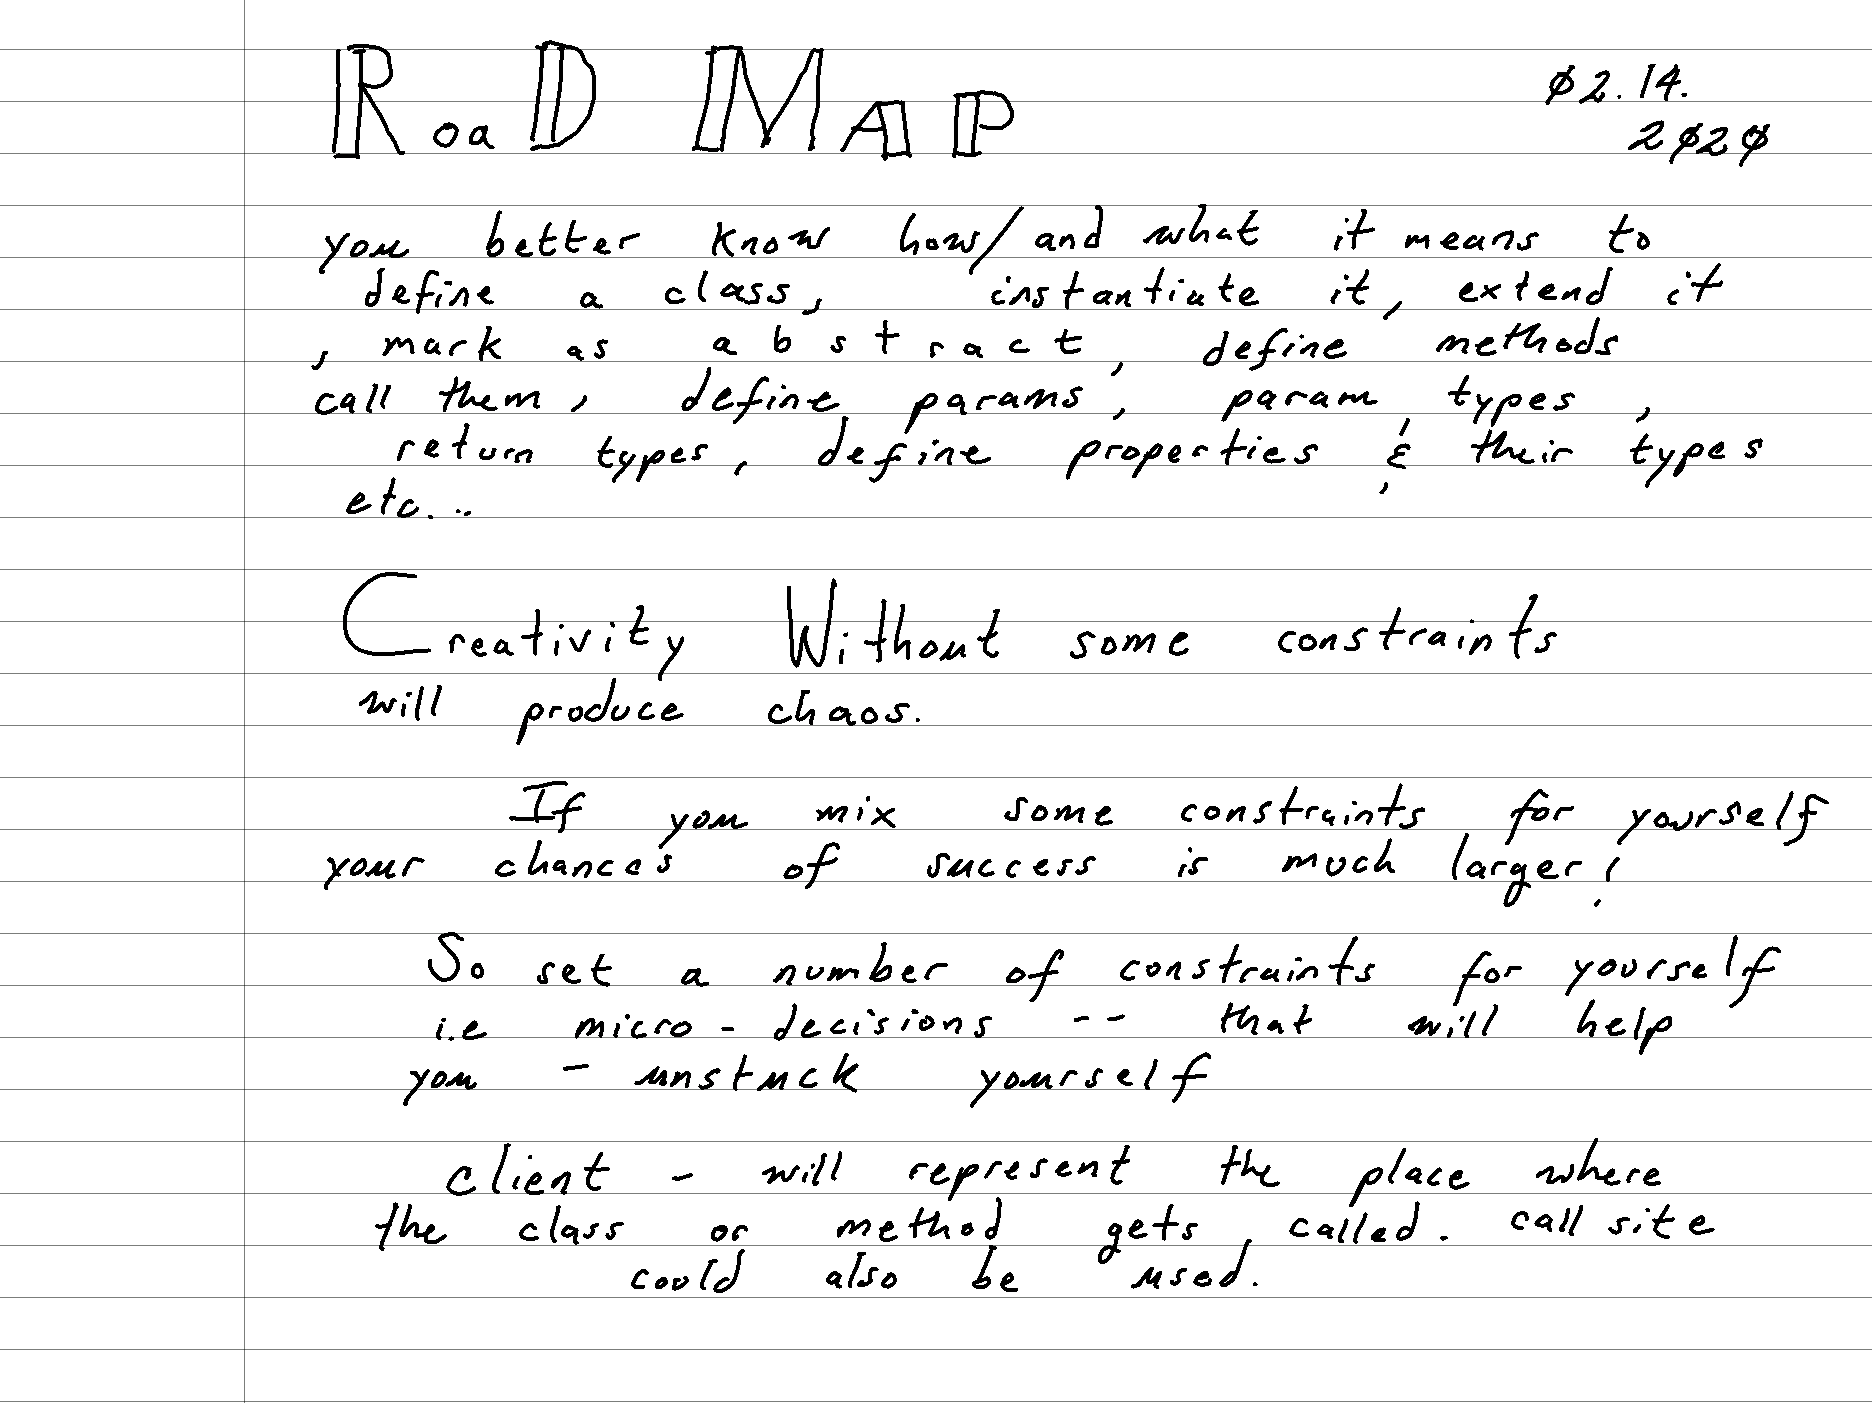 RoaD MAP
02.14.
2020
you better know how/and what it means to
define a class, instantiate it, extend it
, mark as abstract, define methods
call them, define params, param types,
return types, define properties & their types
etc...
Creativity Without some constraints
will produce chaos.
If you mix some constraints for yourself
your chances of success is much larger!
So set a number of constraints for yourself
i.e micro-decisions -- that will help
you - unstuck yourself
client - will represent the place where
the class or method gets called. call site
could also be used.